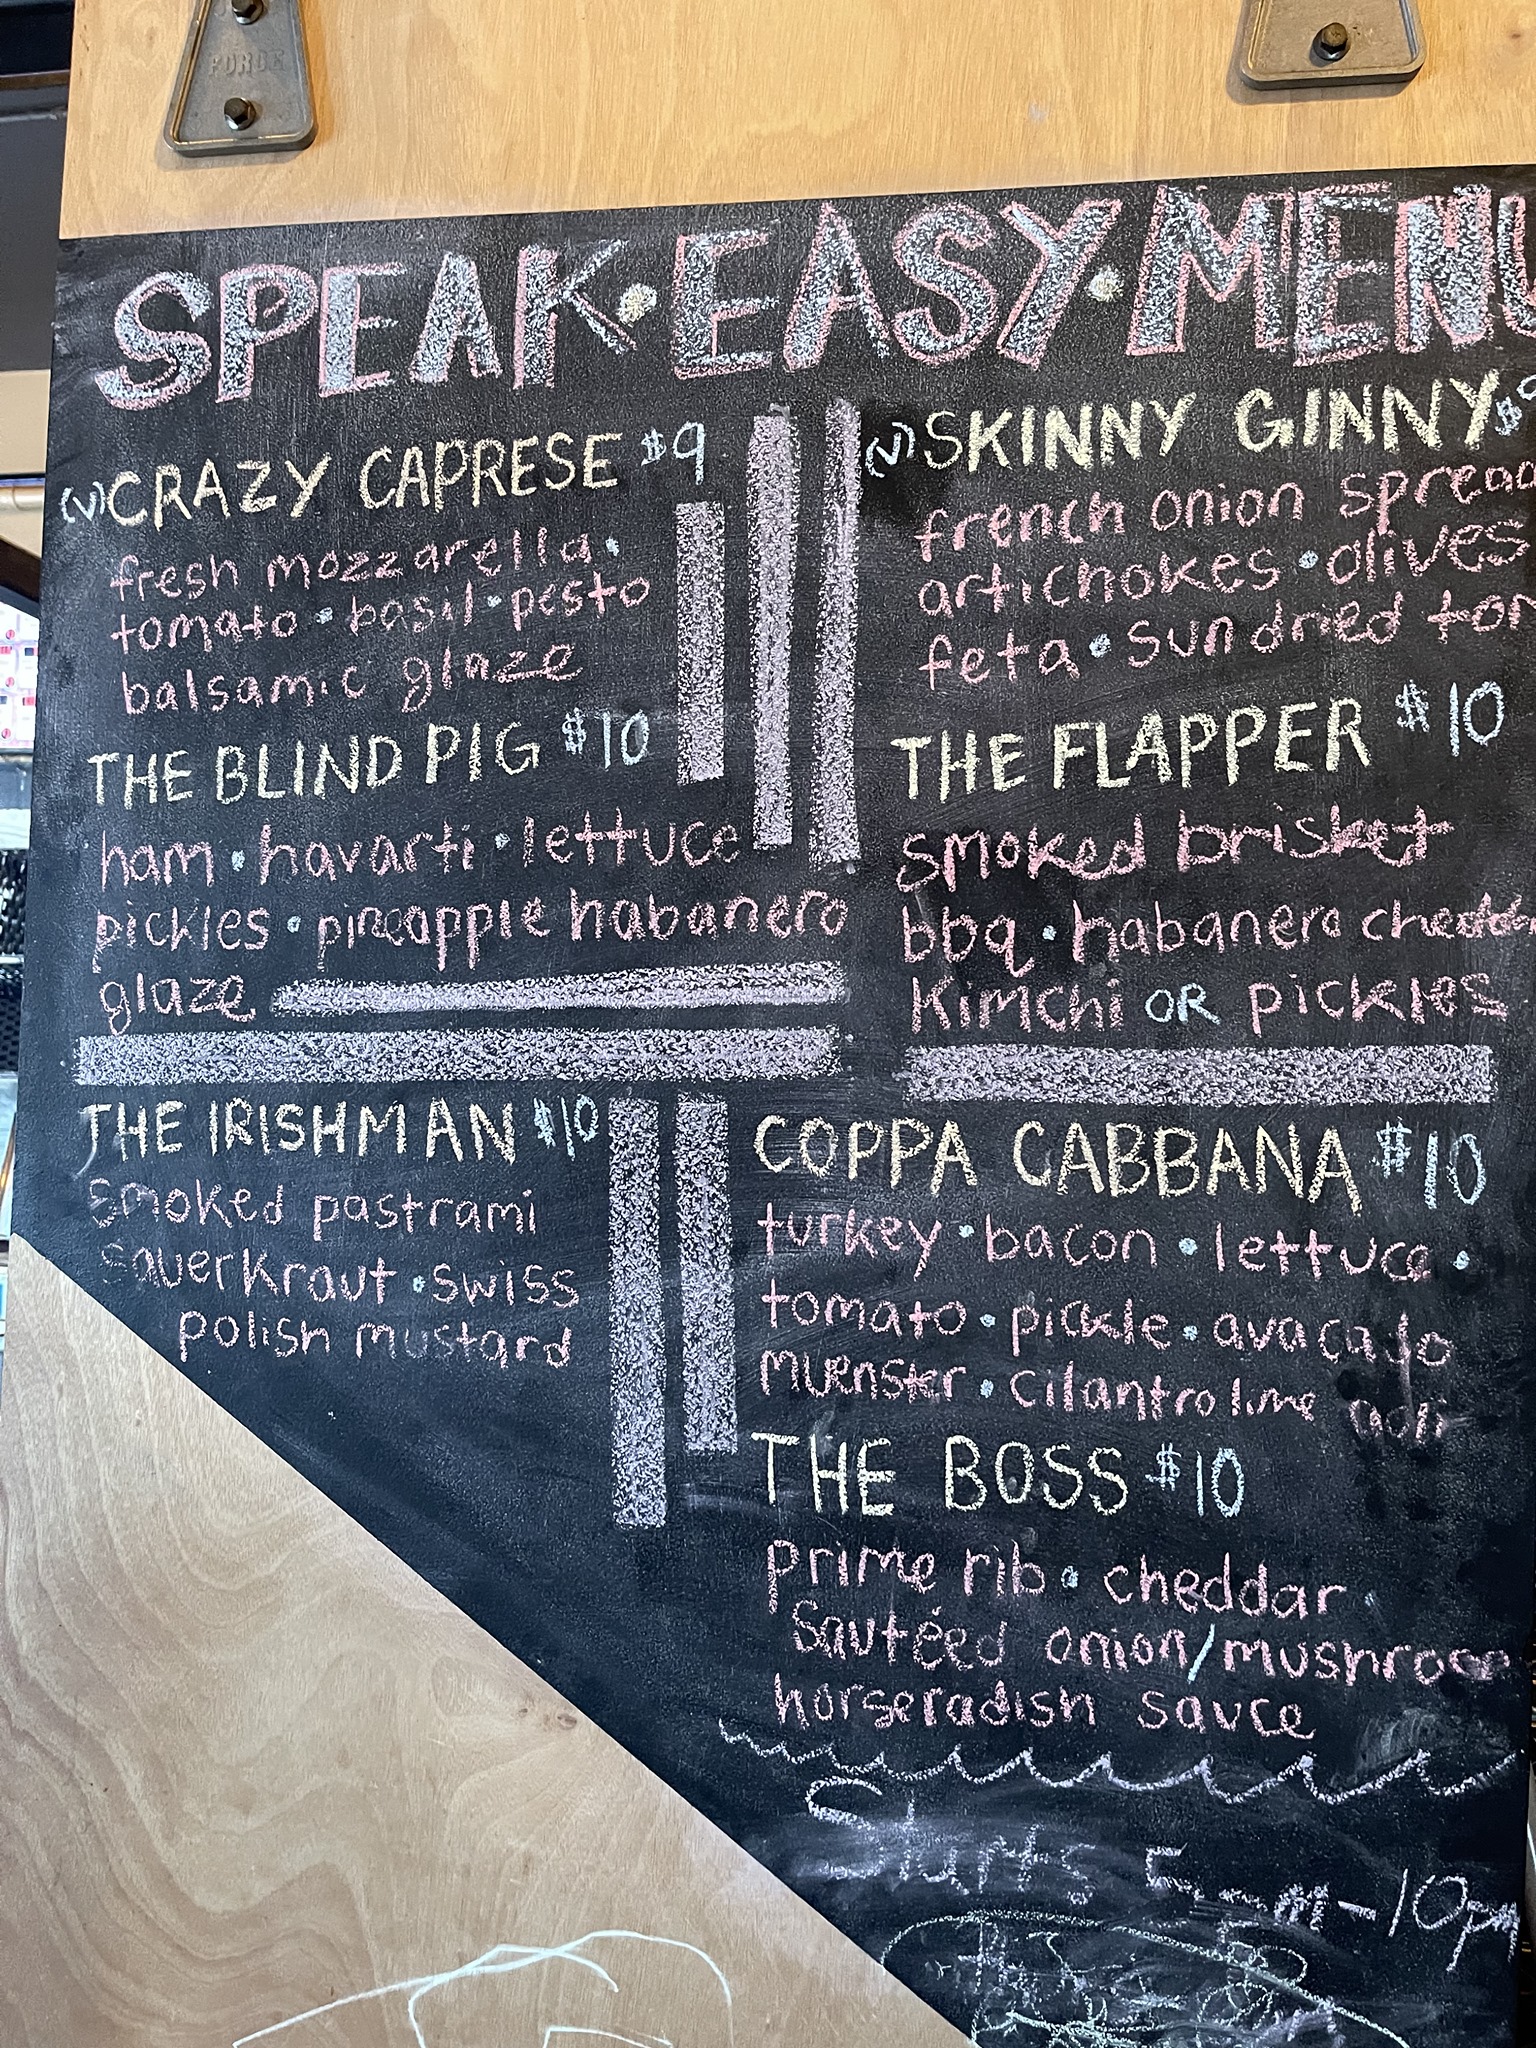 FORGE
SPEAK•EASY•MENU
(V) CRAZY CAPRESE $9
fresh mozzarella •
tomato • basil • pesto
balsamic glaze
THE BLIND PIG $10
ham • havarti • lettuce
pickles • pineapple habanero
glaze
(V) SKINNY GINNY
french onion spread
artichokes • olives
feta • sundried
THE FLAPPER $10
smoked brisket
bbq • habanero
kimchi OR pickles
THE IRISHMAN $10
smoked pastrami
sauerkraut • swiss
polish mustard
COPPA CABBANA $10
turkey • bacon • lettuce •
tomato • pickle • avacado
muenster • cilantro lime aoli
THE BOSS $10
prime rib • cheddar
Sautéed onion/mushroom
horseradish sauce
Starts 5pm-10pm